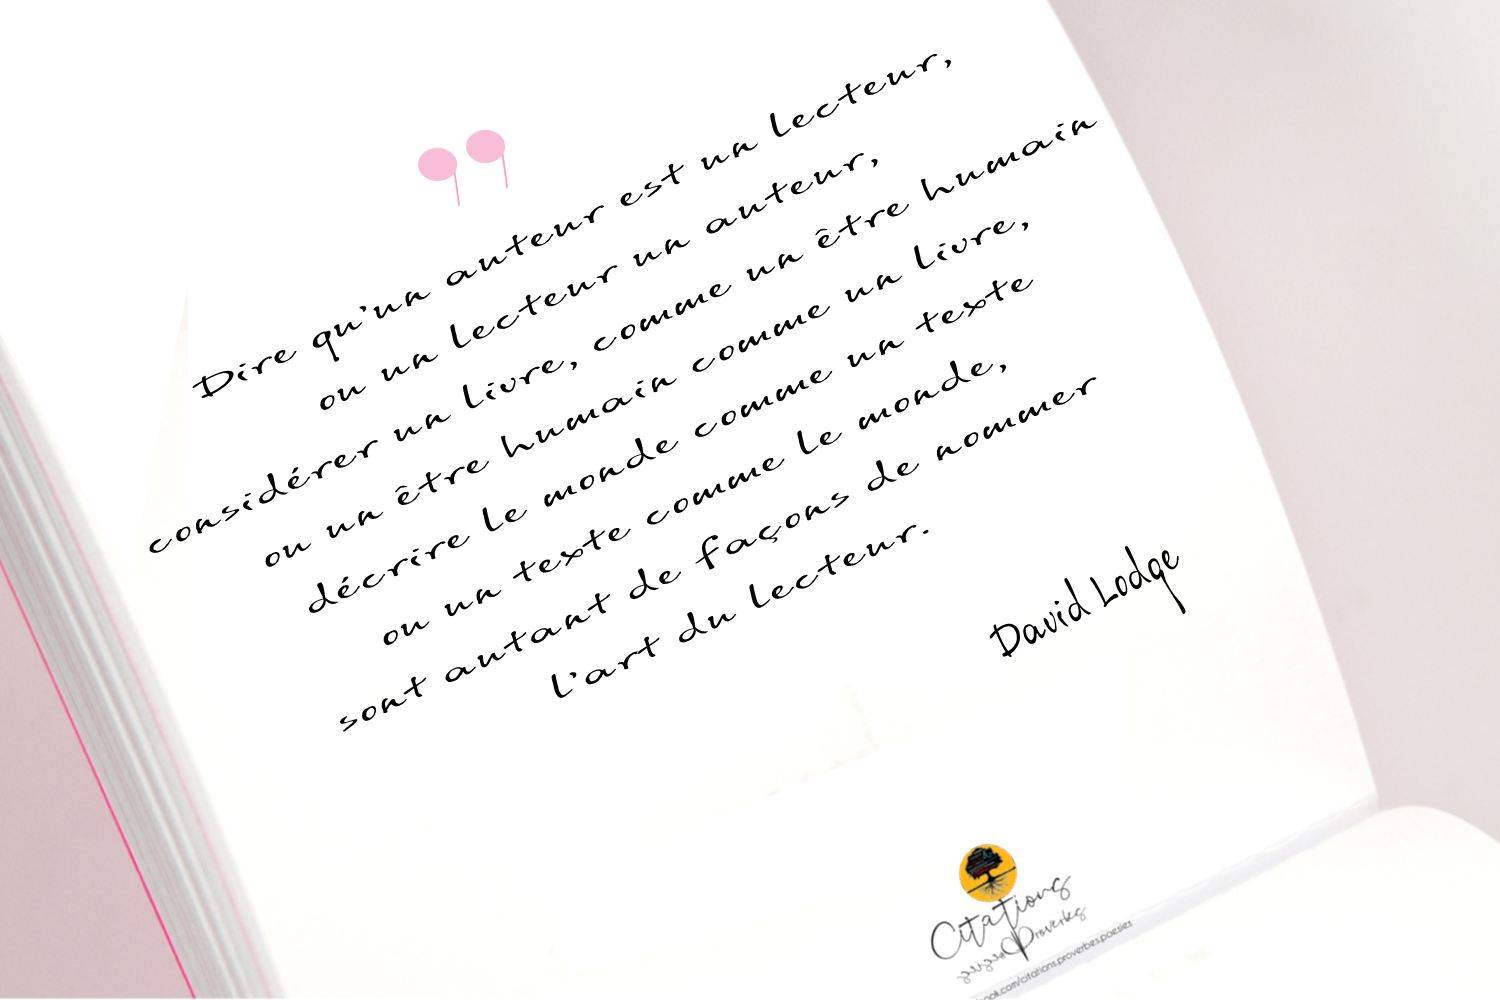 Dire qu'un auteur est un lecteur,
ou un lecteur un auteur,
considérer un livre, comme un être humain
ou un être humain comme un livre,
décrire le monde comme un texte
ou un texte comme le monde,
sont autant de façons de nommer
l'art du lecteur.
David Lodge
Citations
Proverbes
ook.com/citations.proverbes.poesies